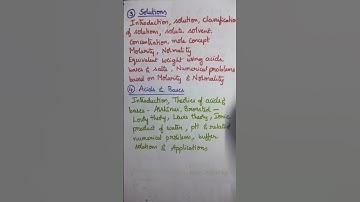 ③ Solutions
Introduction, solution, classification
of solutions, solute, solvent.
Concentration, mole concept
Molarity, Normality
Equivalent weight using acids
bases & salts, Numerical problems
based on Molarity & Normality
④ Acids & Bases
Introduction, Theories of acids &
bases - Arrhenius, Bronsted -
Lowry theory, Lewis theory, Ionic
product of water, pH & related
numerical problems, buffer
solutions & Applications